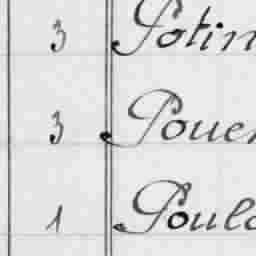 3 Potin
3 Pouer
1 Poulo